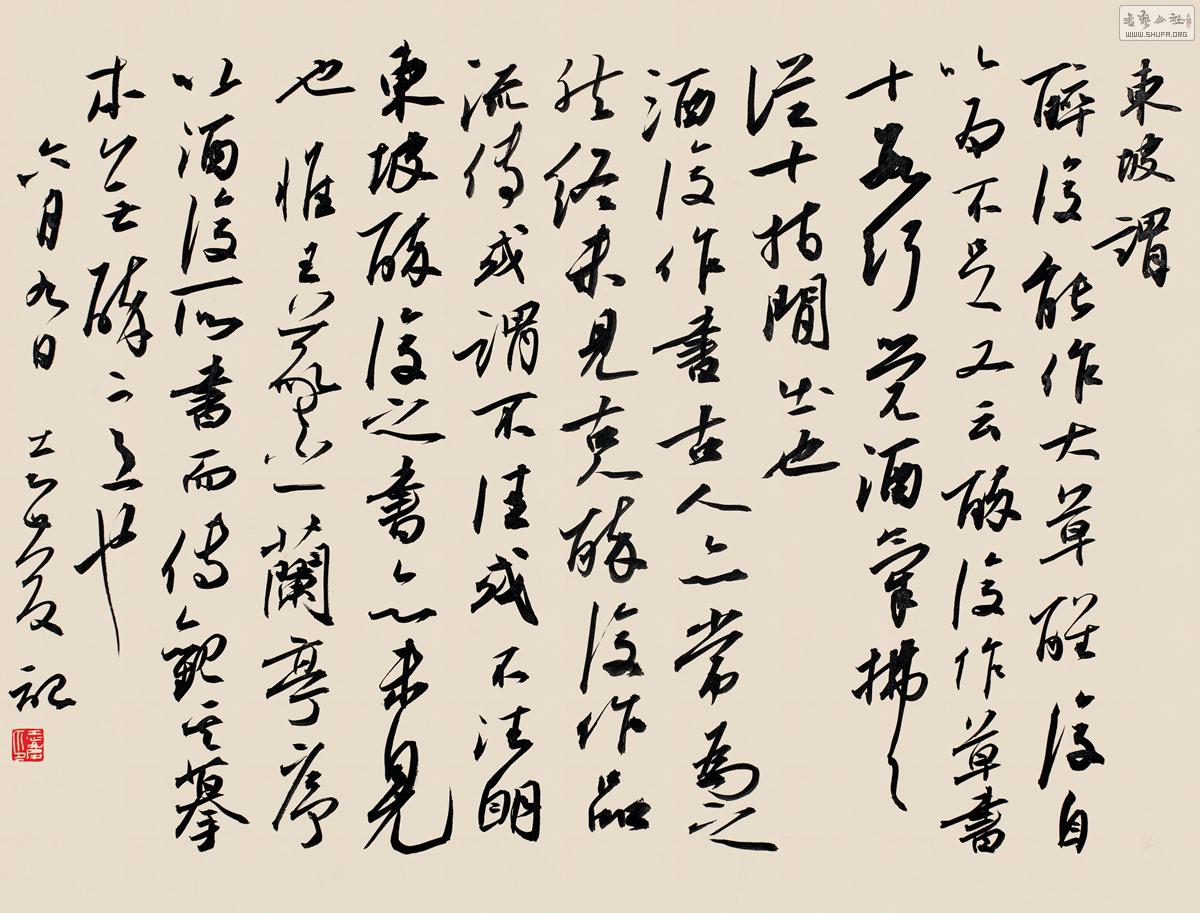 東坡謂
醉後能作大草醒後自
以為不足又云醉後作草書
十數行覺酒氣拂拂
從十指間出也
酒後作書古人亦常為之
然終未見醉後作品
流傳或謂不佳或不法明
東坡醉後之書亦未見
也惟王羲之蘭亭序
以酒後所書而傳觀其摹
本無醉之意也
六月九日 記
書藝公社
WWW.SHUFA.ORG